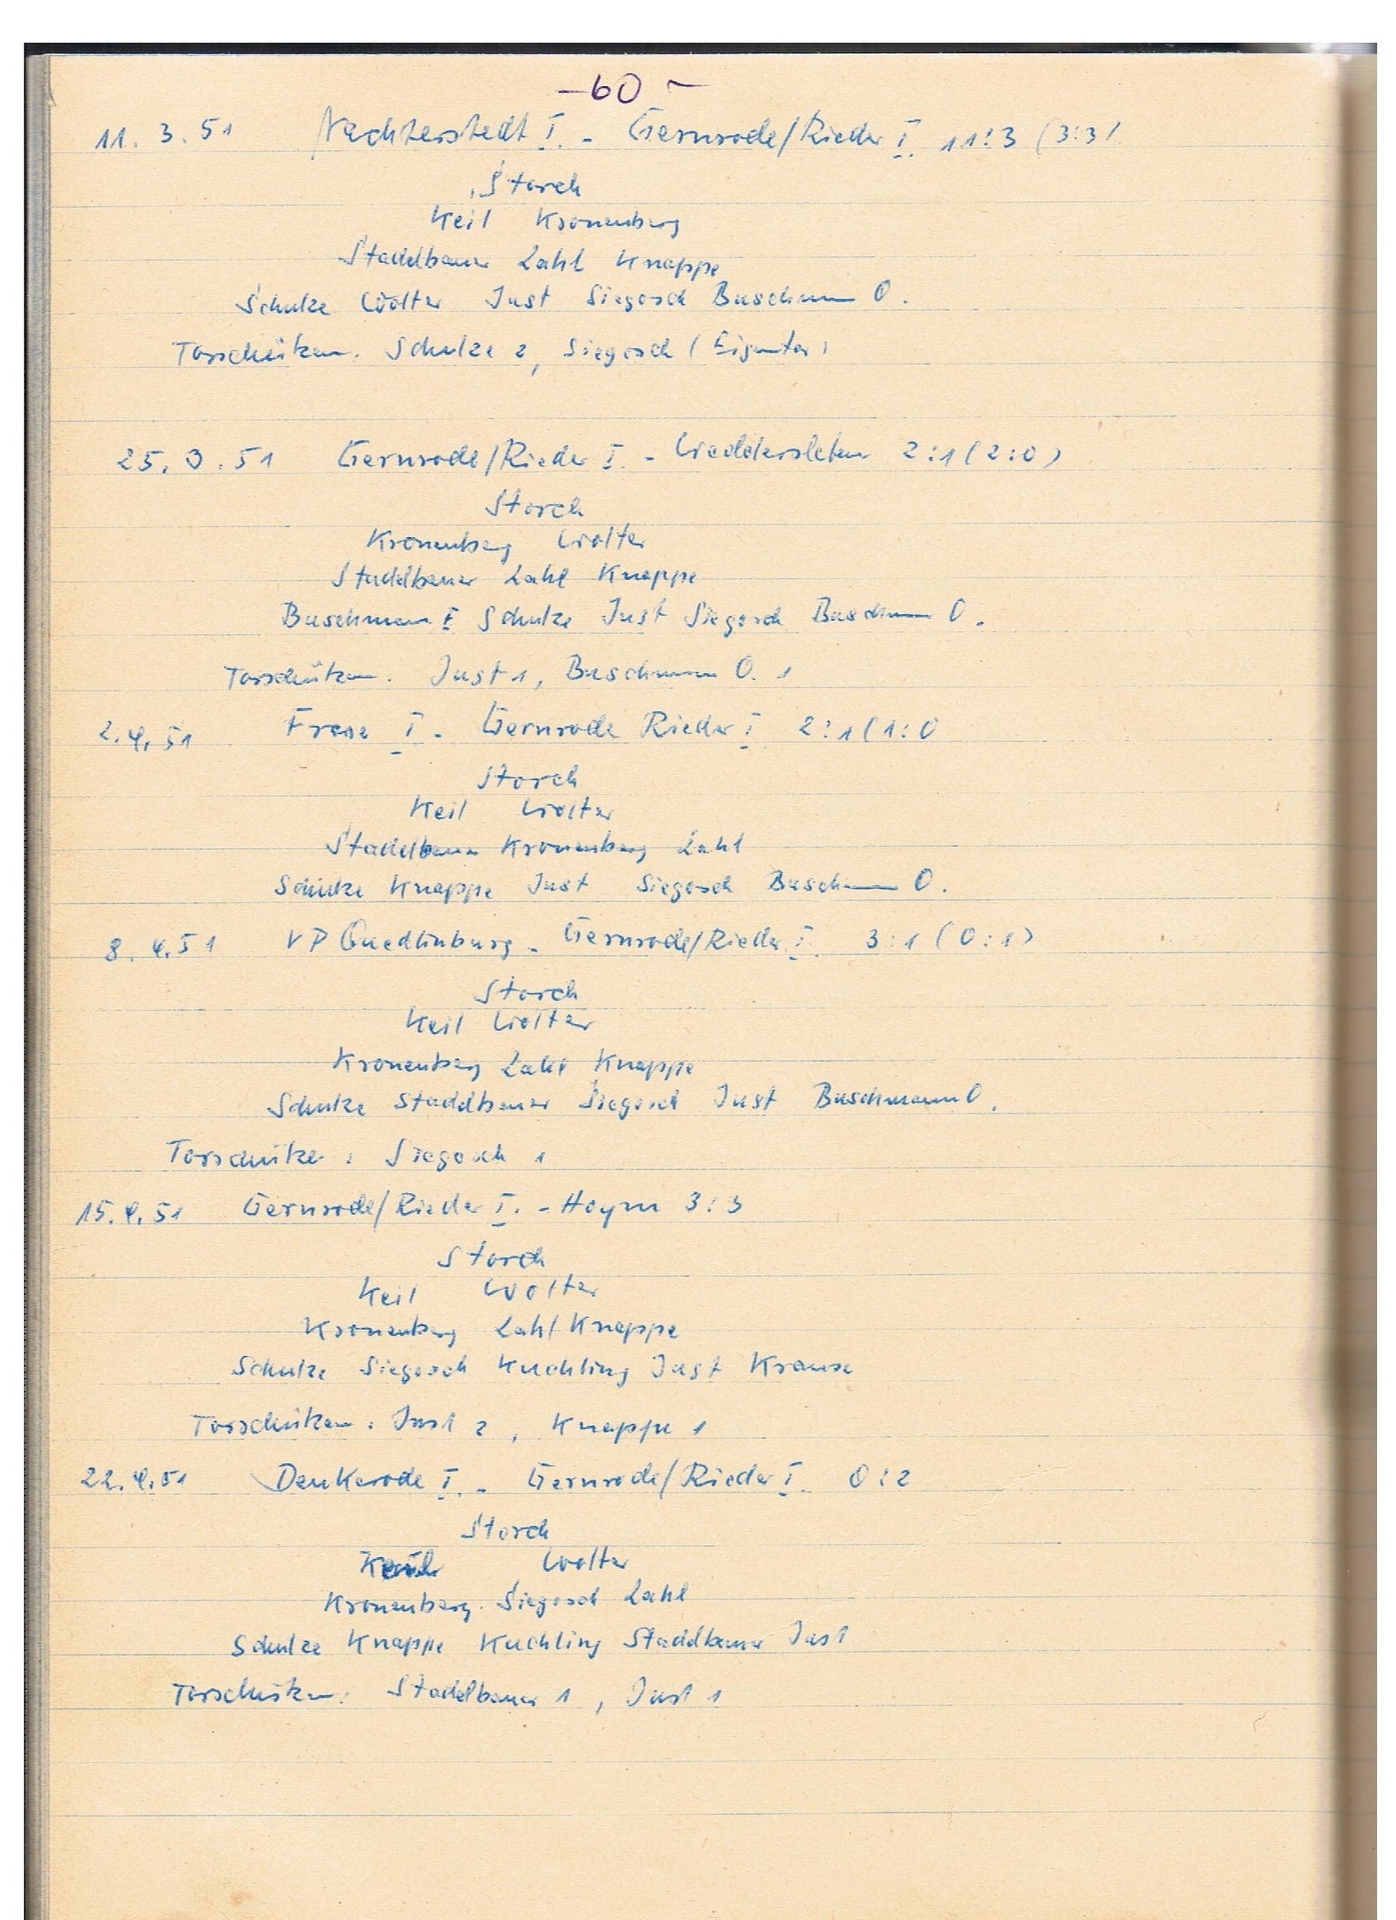 -60-
11. 3. 51 Nachterstedt I. - Gernrode/Rieder I. 11:3 (3:3)
Storch
Keil Kronenberg
Stadelbauer Zahl Knappe
Schulze Wolter Just Siegosch Buschmann O.
Torschützen. Schulze 2, Siegosch (Eigentor)
25. 3. 51 Gernrode/Rieder I. - Weddersleben 2:1 (2:0)
Storch
Kronenberg Wolter
Stadelbauer Zahl Knappe
Buschmann E Schulze Just Siegosch Buschmann O.
Torschützen. Just 1, Buschmann O. 1
2. 4. 51 Frose I. - Gernrode Rieder I 2:1 (1:0
Storch
Keil Wolter
Stadelbauer Kronenberg Zahl
Schulze Knappe Just Siegosch Buschmann O.
8. 4. 51 VP Quedlinburg - Gernrode/Rieder I. 3:1 (0:1)
Storch
Keil Wolter
Kronenberg Zahl Knappe
Schulze Stadelbauer Siegosch Just Buschmann O.
Torschütze: Siegosch 1
15. 4. 51 Gernrode/Rieder I. - Hoym 3:3
Storch
Keil Wolter
Kronenberg Zahl Knappe
Schulze Siegosch Kuchling Just Krause
Torschützen: Just 2, Knappe 1
22. 4. 51 Dankerode I. - Gernrode/Rieder I. 0:2
Storch
Wolter
Kronenberg. Siegosch Zahl
Schulze Knappe Kuchling Stadelbauer Just
Torschützen: Stadelbauer 1, Just 1